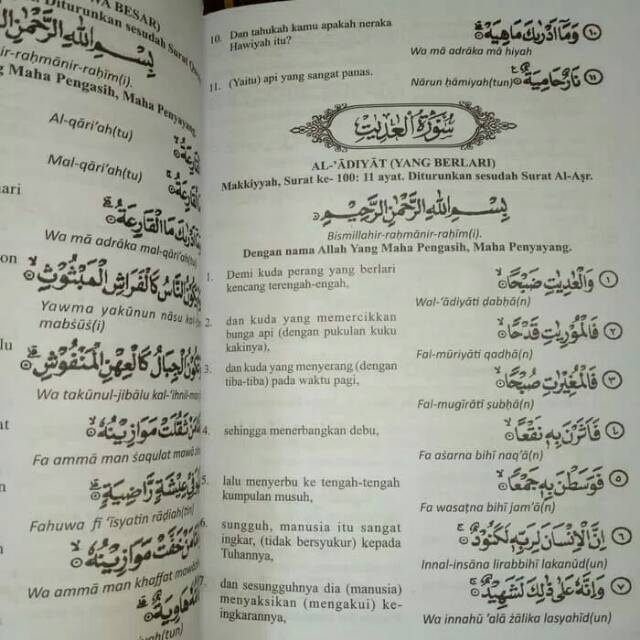 WA BESAR)
Diturunkan sesudah Surat
بِسْمِ اللّٰهِ الرَّحْمٰنِ الرَّحِيْمِ
ir-raḥmānir-raḥīm(i).
Maha Pengasih, Maha Penyayang.
اَلْقَارِعَةُ
Al-qāri‘ah(tu)
مَا الْقَارِعَةُ
Mal-qāri‘ah(tu)
اَدْرٰىكَ مَا الْقَارِعَةُ
Wa mā adrāka mal-qāri‘ah(tu)
يَكُوْنُ النَّاسُ كَالْفَرَاشِ الْمَبْثُوْثِ
Yawma yakūnun nāsu
mabṡūṡ(i)
تَكُوْنُ الْجِبَالُ كَالْعِهْنِ الْمَنْفُوْشِ
Wa takūnul-jibālu kal-‘ihnil-
مَنْ ثَقُلَتْ مَوَازِيْنُهٗ
Fa ammā man ṡaqulat
فِيْ عِيْشَةٍ رَّاضِيَةٍ
Fahuwa fī ‘īsyatin rāḍiah(tin)
مَنْ خَفَّتْ مَوَازِيْنُهٗ
Wa ammā man khaffat
هَاوِيَةٌ
hāwiyah(tun)
10. Dan tahukah kamu apakah neraka
Hawiyah itu?
وَمَآ اَدْرٰىكَ مَا هِيَهْ ۝١٠
Wa mā adrāka mā hiyah
11. (Yaitu) api yang sangat panas.
نَارٌ حَامِيَةٌ ۝١١
Nārun ḥāmiyah(tun)
سُوْرَةُ الْعٰدِيٰتِ
AL-'ĀDIYĀT (YANG BERLARI)
Makkiyyah, Surat ke- 100: 11 ayat. Diturunkan sesudah Surat Al-Aṣr.
بِسْمِ اللّٰهِ الرَّحْمٰنِ الرَّحِيْمِ
Bismillahir-raḥmānir-raḥīm(i).
Dengan nama Allah Yang Maha Pengasih, Maha Penyayang.
1. Demi kuda perang yang berlari
kencang terengah-engah,
وَالْعٰدِيٰتِ ضَبْحًا ۝١
Wal-'ādiyāti ḍabḥā(n)
2. dan kuda yang memercikkan
bunga api (dengan pukulan kuku
kakinya),
فَالْمُوْرِيٰتِ قَدْحًا ۝٢
Fal-mūriyāti qadḥā(n)
3. dan kuda yang menyerang (dengan
tiba-tiba) pada waktu pagi,
فَالْمُغِيْرٰتِ صُبْحًا ۝٣
Fal-mugīrāti ṣubḥā(n)
4. sehingga menerbangkan debu,
فَاَثَرْنَ بِهٖ نَقْعًا ۝٤
Fa aṡarna bihī naq'ā(n)
5. lalu menyerbu ke tengah-tengah
kumpulan musuh,
فَوَسَطْنَ بِهٖ جَمْعًا ۝٥
Fa wasaṭna bihī jam'ā(n)
6. sungguh, manusia itu sangat
ingkar, (tidak bersyukur) kepada
Tuhannya,
اِنَّ الْاِنْسَانَ لِرَبِّهٖ لَكَنُوْدٌ ۝٦
Innal-insāna lirabbihī lakanūd(un)
7. dan sesungguhnya dia (manusia)
menyaksikan (mengakui) ke-
ingkarannya,
وَاِنَّهٗ عَلٰى ذٰلِكَ لَشَهِيْدٌ ۝٧
Wa innahū 'alā żālika lasyahīd(un)